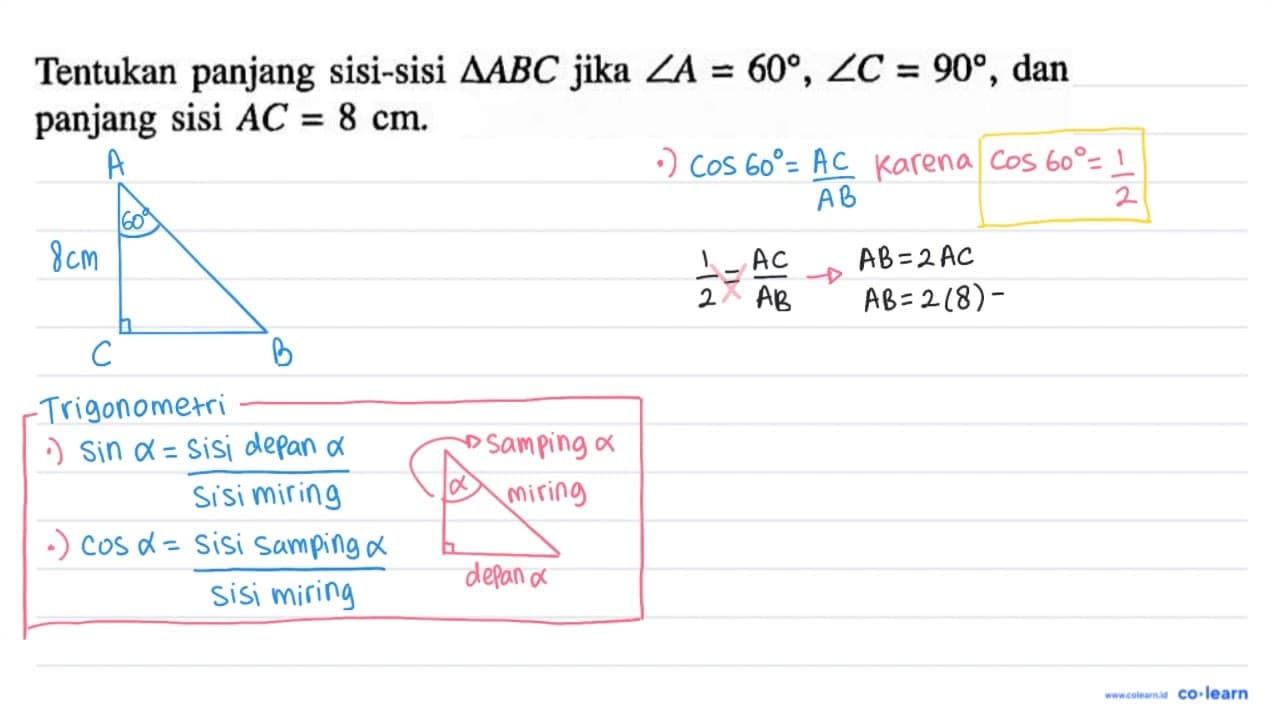 Tentukan panjang sisi-sisi ΔABC jika ∠A = 60°, ∠C = 90°, dan
panjang sisi AC = 8 cm.
A
60°
8cm
C
B
•) cos 60° = AC/AB karena cos 60° = 1/2
1/2 = AC/AB → AB = 2 AC
AB = 2(8) -
Trigonometri
•) sin α = sisi depan α
sisi miring
•) cos α = sisi samping α
sisi miring
samping α
α
miring
depan α
www.colearn.id co·learn